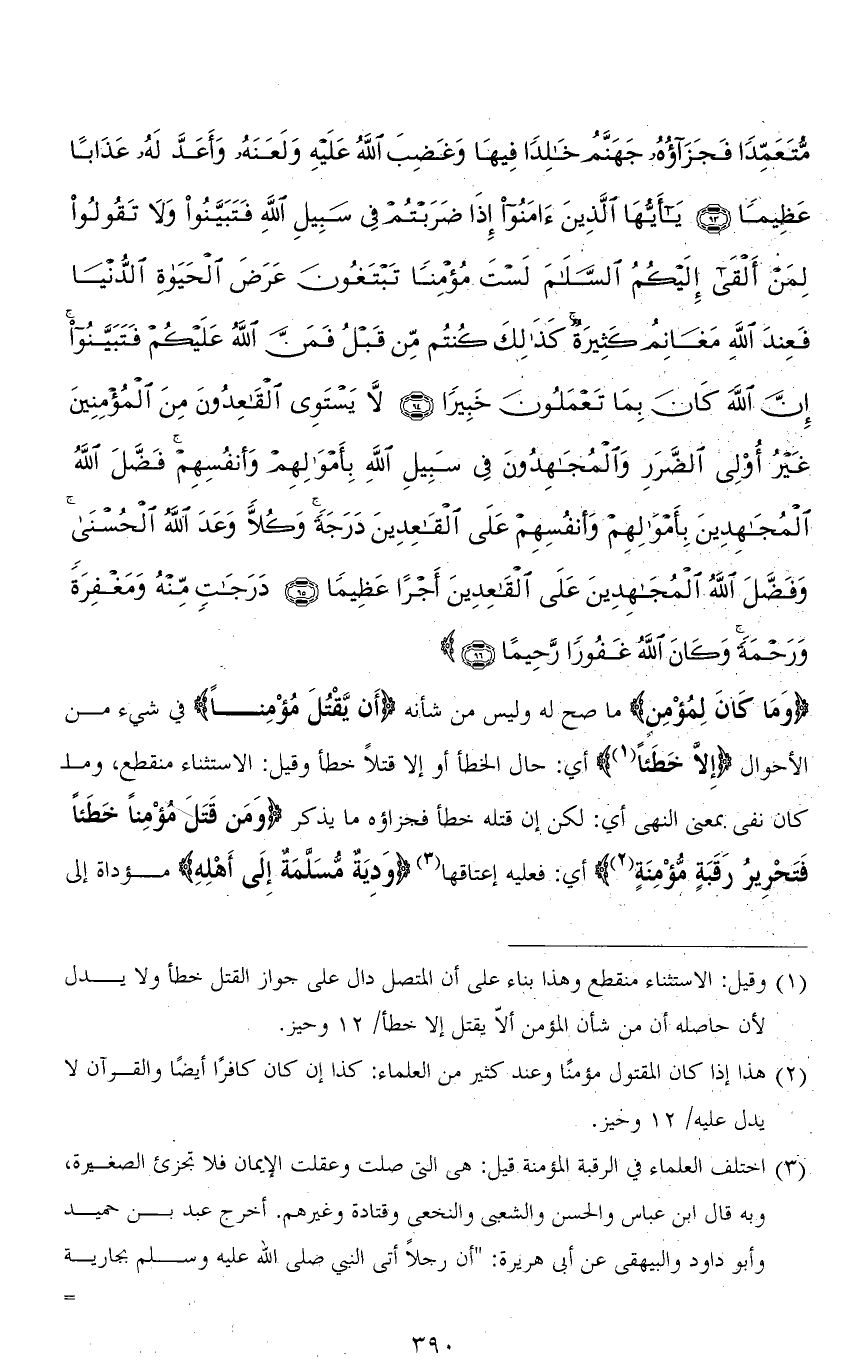 مُّتَعَمِّدًا فَجَزَآؤُهُۥ جَهَنَّمُ خَٰلِدًا فِيهَا وَغَضِبَ ٱللَّهُ عَلَيْهِ وَلَعَنَهُۥ وَأَعَدَّ لَهُۥ عَذَابًا
عَظِيمًا ﴿٩٣﴾ يَٰٓأَيُّهَا ٱلَّذِينَ ءَامَنُوٓا۟ إِذَا ضَرَبْتُمْ فِى سَبِيلِ ٱللَّهِ فَتَبَيَّنُوا۟ وَلَا تَقُولُوا۟
لِمَنْ أَلْقَىٰٓ إِلَيْكُمُ ٱلسَّلَٰمَ لَسْتَ مُؤْمِنًا تَبْتَغُونَ عَرَضَ ٱلْحَيَوٰةِ ٱلدُّنْيَا
فَعِندَ ٱللَّهِ مَغَانِمُ كَثِيرَةٌ ۚ كَذَٰلِكَ كُنتُم مِّن قَبْلُ فَمَنَّ ٱللَّهُ عَلَيْكُمْ فَتَبَيَّنُوٓا۟ ۚ
إِنَّ ٱللَّهَ كَانَ بِمَا تَعْمَلُونَ خَبِيرًا ﴿٩٤﴾ لَّا يَسْتَوِى ٱلْقَٰعِدُونَ مِنَ ٱلْمُؤْمِنِينَ
غَيْرُ أُو۟لِى ٱلضَّرَرِ وَٱلْمُجَٰهِدُونَ فِى سَبِيلِ ٱللَّهِ بِأَمْوَٰلِهِمْ وَأَنفُسِهِمْ ۚ فَضَّلَ ٱللَّهُ
ٱلْمُجَٰهِدِينَ بِأَمْوَٰلِهِمْ وَأَنفُسِهِمْ عَلَى ٱلْقَٰعِدِينَ دَرَجَةً ۚ وَكُلًّا وَعَدَ ٱللَّهُ ٱلْحُسْنَىٰ ۚ
وَفَضَّلَ ٱللَّهُ ٱلْمُجَٰهِدِينَ عَلَى ٱلْقَٰعِدِينَ أَجْرًا عَظِيمًا ﴿٩٥﴾ دَرَجَٰتٍ مِّنْهُ وَمَغْفِرَةً
وَرَحْمَةً ۚ وَكَانَ ٱللَّهُ غَفُورًا رَّحِيمًا ﴿٩٦﴾ ﴾
﴿وَمَا كَانَ لِمُؤْمِنٍ﴾ ما صح له وليس من شأنه ﴿أَن يَّقْتُلَ مُؤْمِنــــاً﴾ في شيء مـــن
الأحوال ﴿إِلاَّ خَطَئاً(١)﴾ أي: حال الخطأ أو إلا قتلاً خطأ وقيل: الاستثناء منقطع، ومـا
كان نفى بمعنى النهى أي: لكن إن قتله خطأ فجزاؤه ما يذكر ﴿وَمَن قَتَلَ مُؤْمِناً خَطَئاً
فَتَحْرِيرُ رَقَبَةٍ مُّؤْمِنَةٍ(٢)﴾ أي: فعليه إعتاقها(٣) ﴿وَدِيَةٌ مُّسَلَّمَةٌ إِلَى أَهْلِهِ﴾ مــؤداة إلى
(١) وقيل: الاستثناء منقطع وهذا بناء على أن المتصل دال على جواز القتل خطأ ولا يـــدل
لأن حاصله أن من شأن المؤمن ألاّ يقتل إلا خطأ/ ١٢ وحيز.
(٢) هذا إذا كان المقتول مؤمنًا وعند كثير من العلماء: كذا إن كان كافرًا أيضًا والقــرآن لا
يدل عليه/ ١٢ وحيز.
(٣) اختلف العلماء في الرقبة المؤمنة قيل: هى التى صلت وعقلت الإيمان فلا تجزئ الصغــيرة،
وبه قال ابن عباس والحسن والشعبى والنخعى وقتادة وغيرهم. أخرج عبد بـــن حميــد
وأبو داود والبيهقى عن أبى هريرة: "أن رجلاً أتى النبي صلى الله عليه وســـلم بجاريــة
=
٣٩٠